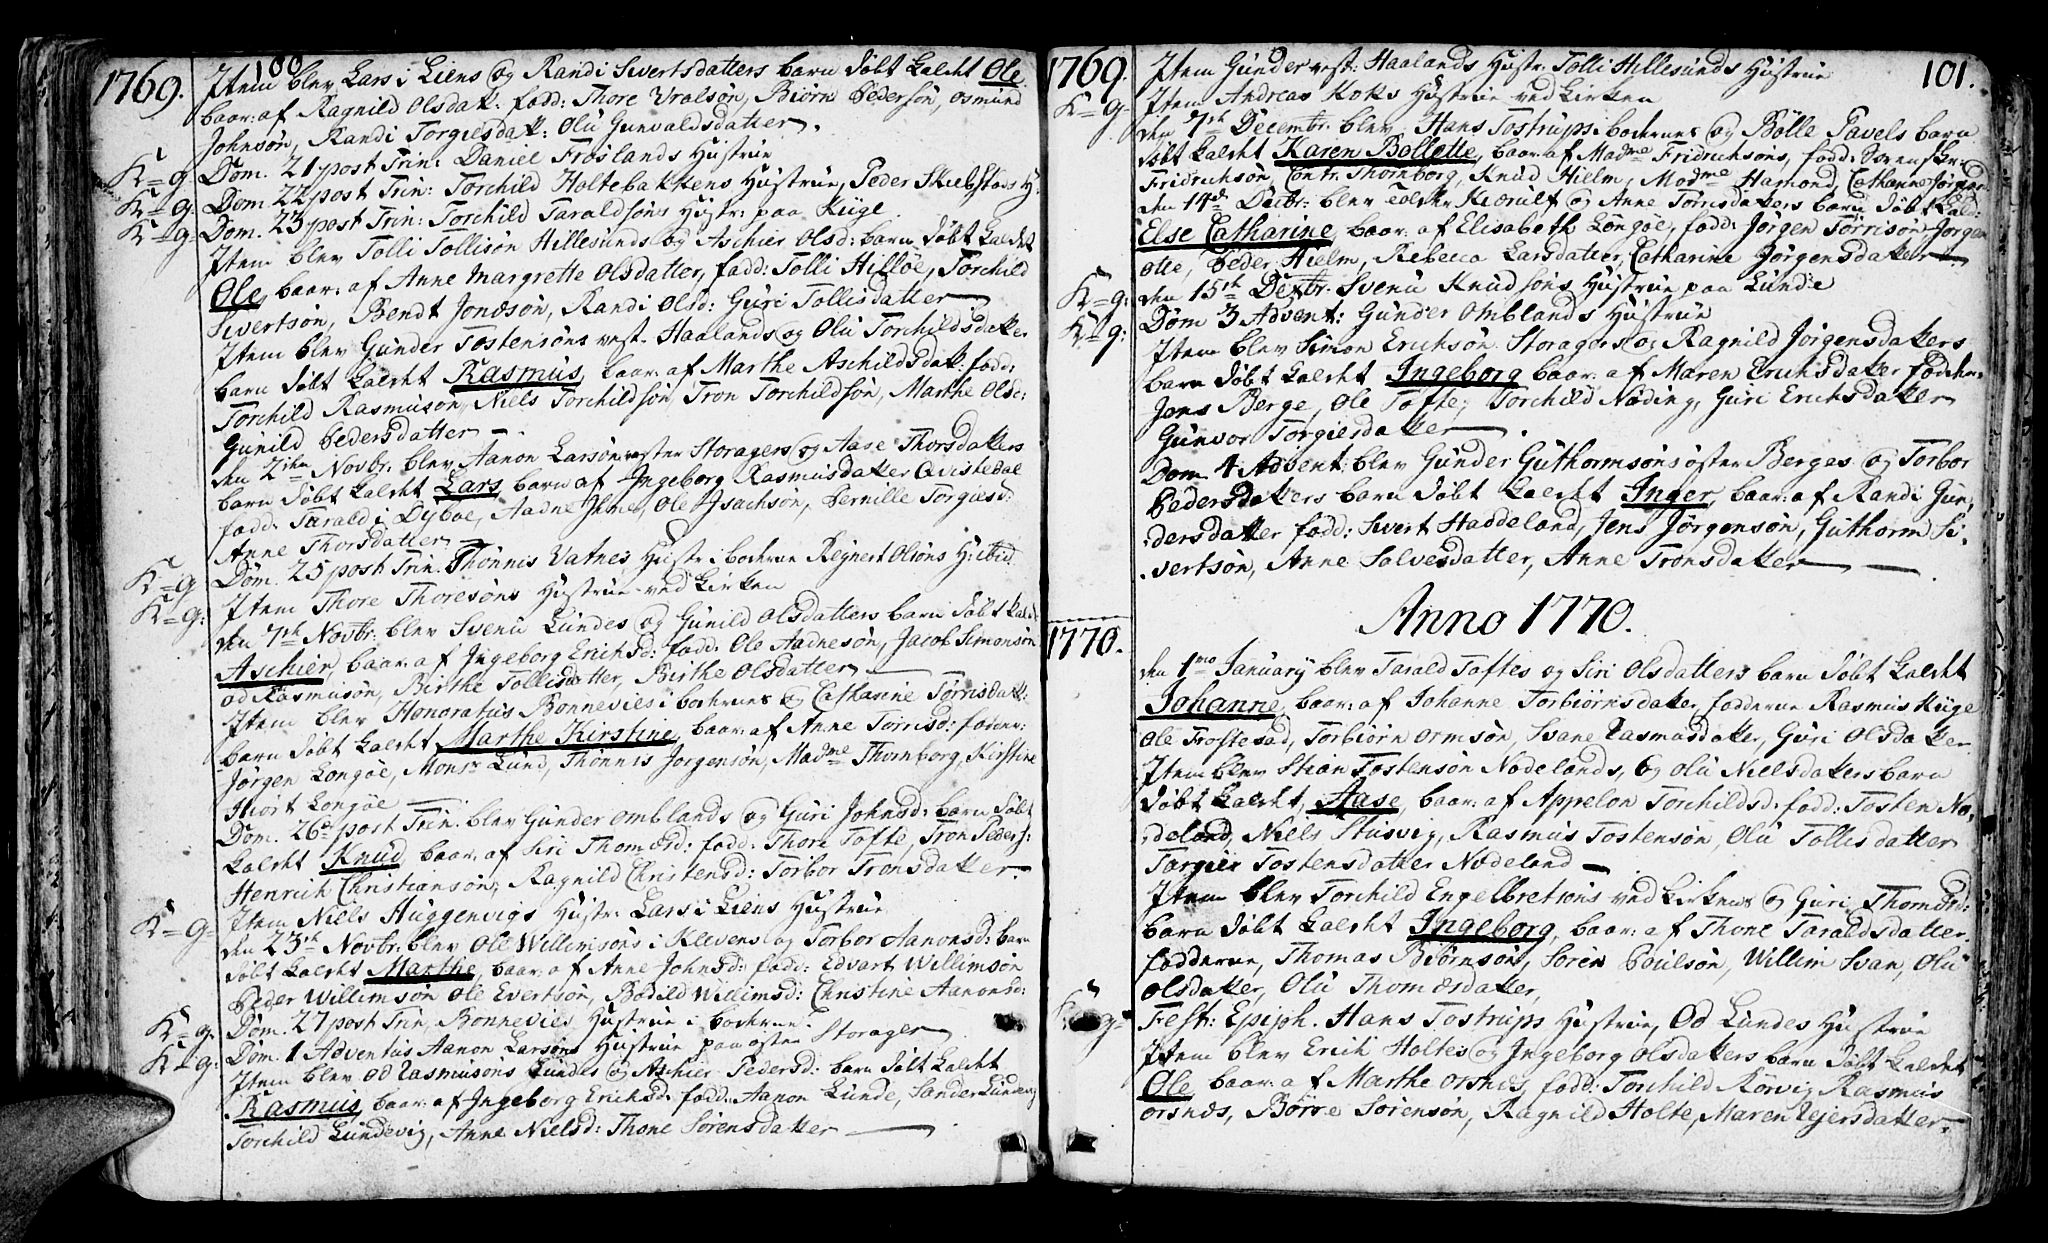 1769.
100
Item blev Lars i Liens og Randi Sivertsdatters barn døbt kaldt Ole
baar: af Ragnild Olsdatt: fadd: Thore Joelsøn, Biørn Pedersøn, Osmund
Johnsøn, Randi Torgiesdatt: Olü Gunvaldsdatter.
K=g Dom. 21 post Trin: Daniel Frøslands Hüstrüe
K=g. Dom. 22 post Trin: Torchild Holtebakkens Hüstrüe, Peder Skiebstads H:
K=g: Dom. 23 post Trin: Torchild Taraldsøns Hüstr: paa Küge.
Item blev Tolli Tollisøn Hillesünds og Aschier Olsd: barn døbt kaldet
Ole, baar: af Anne Margrette Olsdatter, fadd: Tolli Hilløe, Torchild
Sivertsøn, Bendt Jonæsøn, Randi Olsd: Güri Tollisdatter
Item blev Günder Tostensøns vest. Haalands og Olü Torchildsdatter
barn døbt kaldt Rasmüs, baar: af Marthe Aschildsdatt: fadd:
Torchild Rasmüsøn, Niels Torchildsøn, Tron Torchildsøn, Marthe Olsd:
Günild Pedersdatter
den 2den Novbr: blev Aanon Larsøn øster Storagers og Aase Thorsdatters
barn døbt kaldt Lars, barn af Ingeborg Rasmüsdatter
fadd: Tarald i Dybøe, Aadne, Ole Isachsøn, Pernille Torgiesd:
Anne Thorsdatter
K=g Dom. 25 post Trin. Thønnis Vatnes Hüstr: i bochrne Reinert Olsøns H:
K=g: Item Thore Thoresøns Hüstrüe ved Kirken
den 7de Novbr: blev Svenü Lündes og Günild Olsdatters barn døbt kaldt
Aschier, baar: af Ingeborg Erichsd: fadd: Ole Aadnesøn, Jacob Simonsøn
od Rasmüsøn, Birthe Tollisdatter, Birthe Olsdatter
Item blev Honoratüs Bonnevies i bochrnes og Catharine Tørrisdatt:
barn døbt kaldt Marthe Kirstine, baar: af Anne Tørrisd: fadder:
Jørgen Longøe, Monsr Lünd, Thønnis Jørgensøn, Madme Thornborg, Kirstine
Hiort Longøe
Dom. 26de post Trin. blev Günder Omblands og Güri Johnsd: barn døbt
kaldt Knüd, baar: af Siri Thomæsd: fadd: Thore Tofte, Tron Peders:
Henrich Christiansøn, Ragnild Christensd: Torbor Tronsdatter.
K=g- Item Niels Hüggenvigs Hüstr: Lars i Liens Hüstrüe
den 23de Novbr: blev Ole Willimsøns i Klevens og Torbor Aanonsd: barn
døbt kaldt Marthe, baar: af Anne Johnsd: fadd: Edvart Willimsøn
Peder Willimsøn Ole Evertsøn, Bodild Willimsd: Christine Aanonsd:
K=g. Dom. 27 post Trin, Bonnevies Hüstrüe i bochrne.
K=g: Dom. 1 Adventüs Aanon Larsøns Hüstrüe paa øster Storager
Item blev Od Rasmüsøns Lündes og Aschier Pedersd: barn døbt kaldt
Rasmüs, baar: af Ingeborg Erichsd: fadd: Aanon Lünde, Sander Lündevig
Torchild Lündevig, Anne Nielsd: Thone Sørensdatter
1769.
101.
Item Günder vest: Haalands Hüstr: Tolli Hillesünds Hüstrüe
K=g- Item Andreas Koks Hüstrüe ved Kirken
den 7de Decembr. blev Hans Tostrups i bochrnes og Bolle Pavels barn
døbt kaldt Karen Bollette, baar: af Madme Fridrichsøns, fadd: Sorenskr:
Fridrichsøn, Contr. Thornborg, Knüd Hielm, Madme Hamond, Cathanne Jørgens
den 14de Decbr: blev Tolder Kierülf og Anne Tørrisdatters barn døbt kald:
Else Catharine, baar: af Elisabeth Longøe, fadd: Jørgen Tørrisøn Jørgen
Olle, Peder Hielm, Rebecca Larsdatter, Catharine Jørgensdatter
K=g: den 15de Decbr. Svenü Knüdsøns Hüstrüe paa Lünde
K=g: Dom 3 Advent: Günder Omblands Hüstrüe
Item blev Simon Erichsøn Storagers og Ragnild Jørgensdatters
barn døbt kaldt Ingeborg baar: af Maren Erichsdatter fadder:
Jens Berge, Ole Tofte, Torchild Noding, Güri Erichsdatter
Günvor Torgiersdatter
Dom. 4 Advent: blev Günder Güthormsøns øster Berges og Torbor
Pedersdatters barn døbt kaldt Inger, baar: af Randi Gün,
dersdatter fadd: Sivert Haddeland, Jens Jørgensøn, Güthorm Si,
vertsøn, Anne Salvesdatter, Anne Tronsdatter
Anno 1770.
1770.
den 1mo Januarij blev Tarald Toftes og Siri Olsdatters barn døbt kaldt
Johanne, baar: af Johanne Torbiørnsdatter, fadderne Rasmüs Küge
Ole Trostesad, Torbiørn Ormsøn, Svane Rasmasdatter, Güri Olsdatter
Item blev Stian Tostensøn Nodelands, og Olü Nielsdatters barn
døbt kaldt, Aase, baar: af Appelon Torchildsd: fadd: Tosten No,
deland, Niels Stusvig, Rasmüs Tostensøn, Olü Tollisdatter
Targier Tostensdatter Nodeland
Item blev Torchild Engelbretsøns ved Kirkens og Güri Thomæsd:
barn døbt kaldt Ingeborg, baar: af Thone Taraldsdatter,
fadderne, Thomas Biørnsøn, Søren Poülsøn, Willim Svan, Olü
Olsdatter, Olü Thomæsdatter,
K=g- Fest: Epiph. Hans Tostrups Hüstrüe, Od Lündes Hüstrüe
Item blev Erich Holtes og Ingeborg Olsdatters barn døbt kaldt
Ole baar: af Marthe Orsnes, fadd: Torchild Rørvig, Rasmüs
Orsnæs, Børre Sørensøn, Ragnild Holte, Maren Rejersdatter.